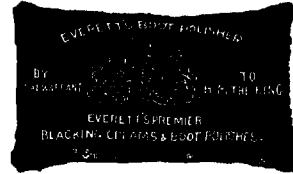 EVERETT'S BOOT POLISHER
BY TO
H.M. THE KING
EVERETT'S PREMIER
BLACKING CREAMS & BOOT POLISHES